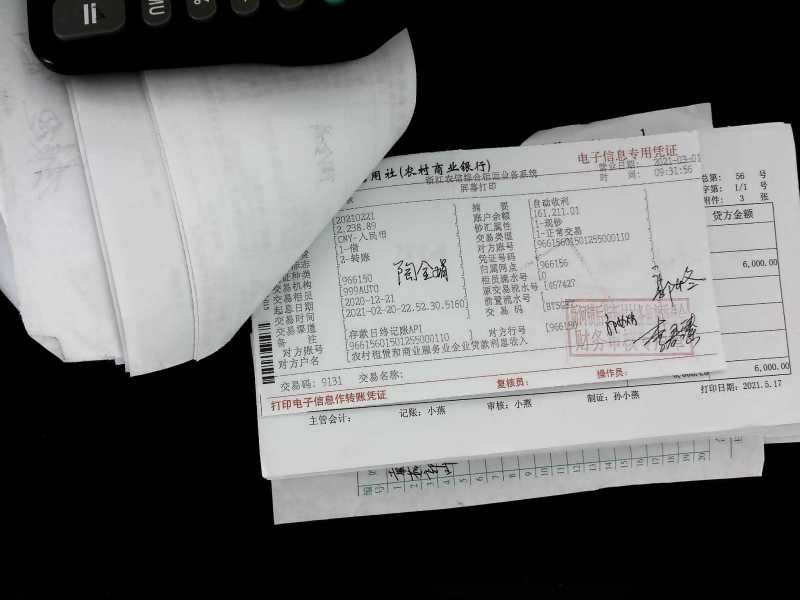 用社(农村商业银行)
电子信息专用凭证
浙江农信综合柜面业务系统
营业日期: 2021-03-01
屏幕打印
时 间: 09:31:56
20210221
摘 要 [自动收利
2,238.89
账户余额 [161,211.01
CNY-人民币
钞汇属性 [1-现钞
1-借
交易类型 [1-正常交易
2-转账
对方账号 [96615601501255000110
证种类
凭证号码 [0
交易机构 [966150
归属网点 [966156
交易柜员 [999AUTO
柜员流水号 [0
起息日期 [2020-12-21
原交易流水号
交易时间 [2021-02-20-22.52.30.5160]
前置流水号
交易渠道
交易码
备 注 [存款日终记账API
对方账号 [96615601501255000110
对方行号 [966150
对方户名 [农村租赁和商业服务业企业贷款利息收入
陶金娟
财务审核专用章
交易码: 9131 交易名称:
打印电子信息作转账凭证
复核员: 操作员:
总第: 56 号
字第: 1/1 号
附件: 3 张
贷方金额
6,000.00
6,000.00 6,000.00
主管会计: 记账: 小燕 审核: 小燕 制证: 孙小燕 打印日期: 2021.5.17
编号 1 2 3 4 5 6 7 8 9 10 11 12 13 14 15 16 17 18 19 20